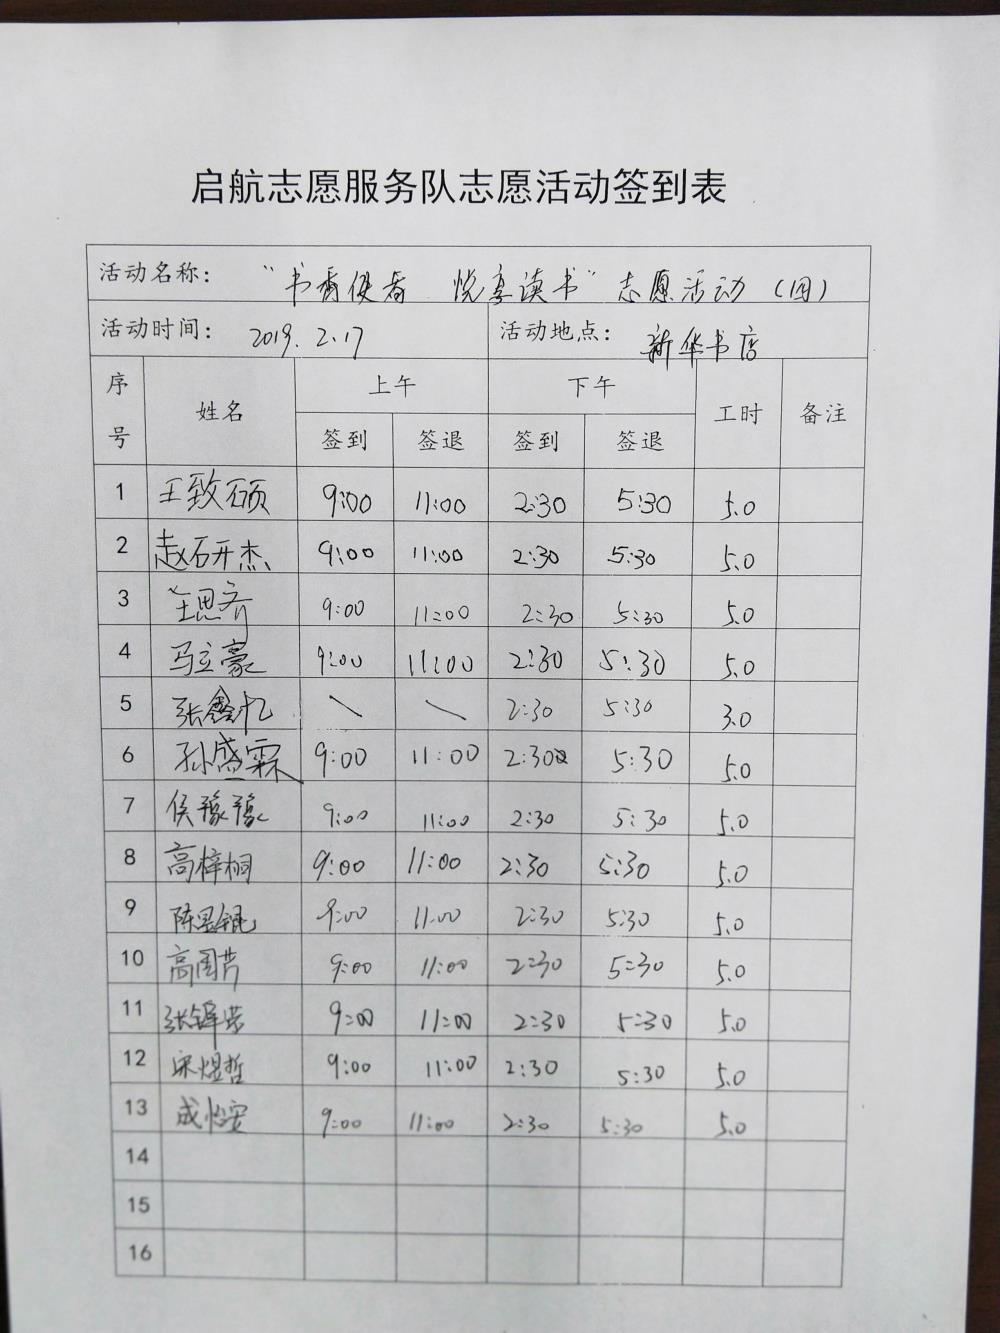 启航志愿服务队志愿活动签到表
活动名称： “书香使者 悦享读书” 志愿活动（四）
活动时间： 2019. 2.17 活动地点： 新华书店
序号 姓名 上午 下午 工时 备注
签到 签退 签到 签退
1 王致硕 9:00 11:00 2:30 5:30 5.0
2 赵研杰 9:00 11:00 2:30 5:30 5.0
3 王思齐 9:00 11:00 2:30 5:30 5.0
4 马立豪 9:00 11:00 2:30 5:30 5.0
5 张鑫忆 \ \ 2:30 5:30 3.0
6 孙盛霖 9:00 11:00 2:30 5:30 5.0
7 侯豫豫 9:00 11:00 2:30 5:30 5.0
8 高梓桐 9:00 11:00 2:30 5:30 5.0
9 陈昱锟 9:00 11:00 2:30 5:30 5.0
10 高周芹 9:00 11:00 2:30 5:30 5.0
11 张锋 9:00 11:00 2:30 5:30 5.0
12 宋煜哲 9:00 11:00 2:30 5:30 5.0
13 成怡安 9:00 11:00 2:30 5:30 5.0
14
15
16